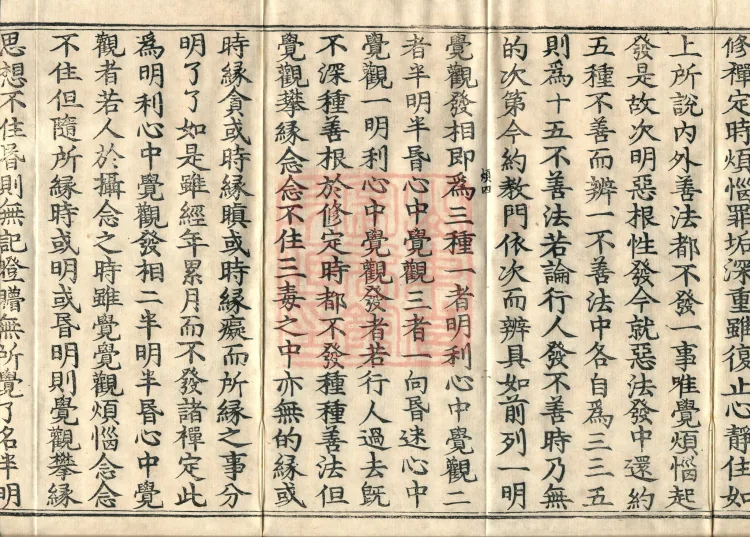 修禪定時煩惱罪垢深重雖復止心靜住如
上所說內外善法都不發一事唯覺煩惱起
發是故次明惡根性發今就惡法發中還約
五種不善而辨一不善法中各自爲三三五
則爲十五不善法若論行人發不善時乃無
的次第今約教門依次而辨具如前列一明
覺觀發相即爲三種一者明利心中覺觀二
者半明半昏心中覺觀三者一向昏迷心中
覺觀一明利心中覺觀發者若行人過去旣
不深種善根於修定時都不發種種善法但
覺觀攀緣念念不住三毒之中亦無的緣或
時緣貪或時緣瞋或時緣癡而所緣之事分
明了了如是雖經年累月而不發諸禪定此
爲明利心中覺觀發相二半明半昏心中覺
觀者若人於攝念之時雖覺覺觀煩惱念念
不住但隨所緣時或明或昏明則覺觀攀緣
思想不住昏則無記瞪瞢無所覺了名半明